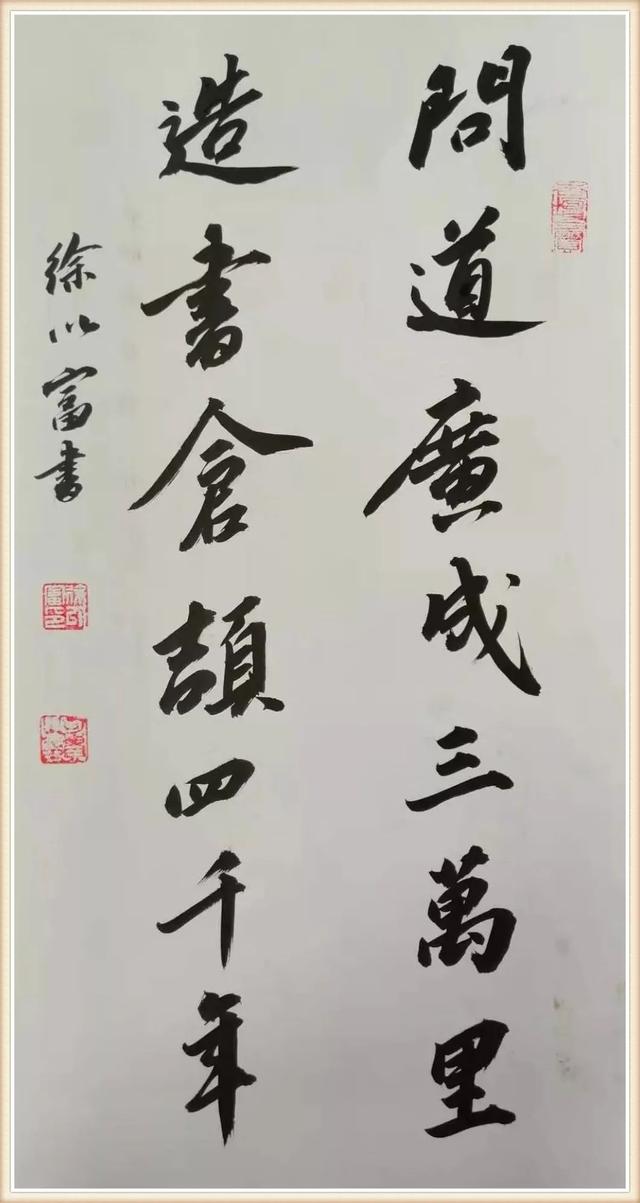 問道廣成三萬里
造書倉頡四千年
徐以富書